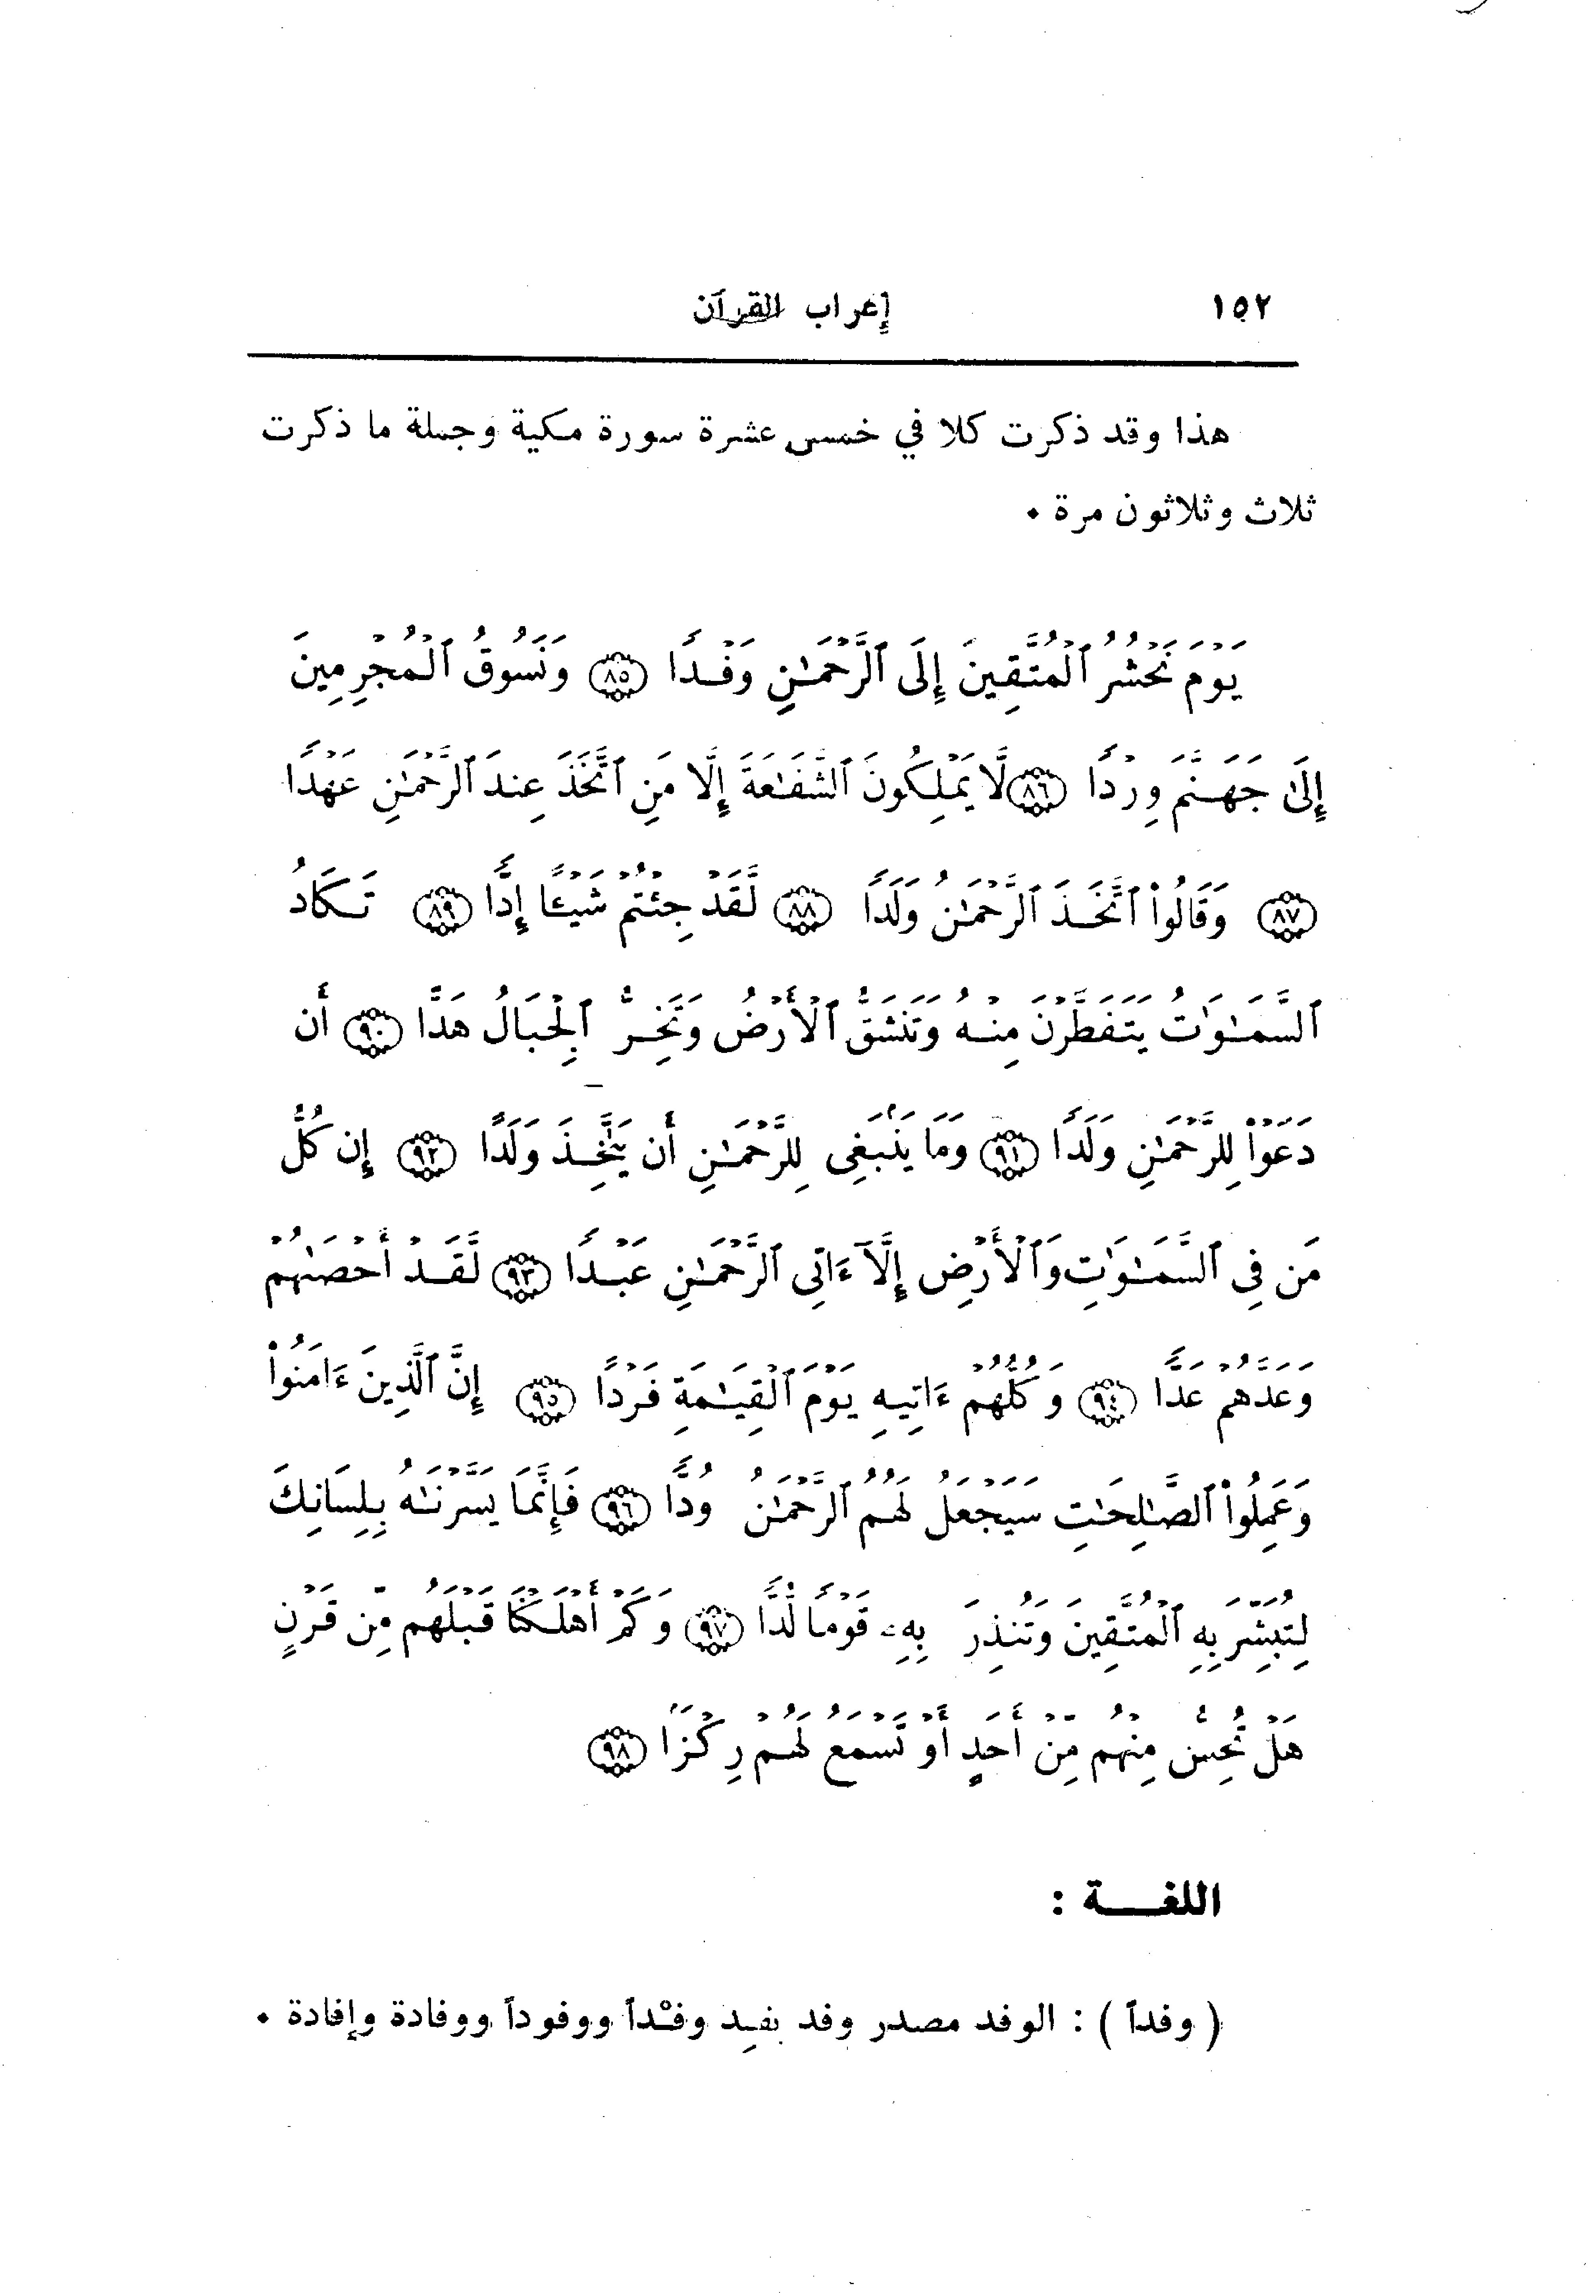 ١٥٢ إعراب القرآن
هذا وقد ذكرت كلا في خمس عشرة سورة مكية وجملة ما ذكرت
ثلاث وثلاثون مرة ٠
يَوْمَ نَحْشُرُ ٱلْمُتَّقِينَ إِلَى ٱلرَّحْمَـٰنِ وَفْـدًا ﴿٨٥﴾ وَنَسُوقُ ٱلْمُجْرِمِينَ
إِلَىٰ جَهَـنَّمَ وِرْدًا ﴿٨٦﴾ لَّا يَمْلِكُونَ ٱلشَّفَـٰعَةَ إِلَّا مَنِ ٱتَّخَذَ عِندَ ٱلرَّحْمَـٰنِ عَهْدًا
﴿٨٧﴾ وَقَالُوا۟ ٱتَّخَـذَ ٱلرَّحْمَـٰنُ وَلَدًا ﴿٨٨﴾ لَّقَدْ جِئْتُمْ شَيْـًٔا إِدًّا ﴿٨٩﴾ تَـكَادُ
ٱلسَّمَـٰوَٰتُ يَتَفَطَّرْنَ مِنْـهُ وَتَنشَقُّ ٱلْأَرْضُ وَتَخِـرُّ ٱلْجِبَالُ هَدًّا ﴿٩٠﴾ أَن
دَعَوْا۟ لِلرَّحْمَـٰنِ وَلَدًا ﴿٩١﴾ وَمَا يَنۢبَغِى لِلرَّحْمَـٰنِ أَن يَتَّخِـذَ وَلَدًا ﴿٩٢﴾ إِن كُلُّ
مَن فِى ٱلسَّمَـٰوَٰتِ وَٱلْأَرْضِ إِلَّآ ءَاتِى ٱلرَّحْمَـٰنِ عَبْـدًا ﴿٩٣﴾ لَّقَـدْ أَحْصَىٰهُمْ
وَعَدَّهُمْ عَدًّا ﴿٩٤﴾ وَكُلُّهُمْ ءَاتِيـهِ يَوْمَ ٱلْقِيَـٰمَةِ فَرْدًا ﴿٩٥﴾ إِنَّ ٱلَّذِينَ ءَامَنُوا۟
وَعَمِلُوا۟ ٱلصَّـٰلِحَـٰتِ سَيَجْعَلُ لَهُـمُ ٱلرَّحْمَـٰنُ وُدًّا ﴿٩٦﴾ فَإِنَّمَا يَسَّرْنَـٰهُ بِلِسَانِكَ
لِتُبَشِّرَ بِهِ ٱلْمُتَّقِينَ وَتُنذِرَ بِهِۦ قَوْمًا لُّدًّا ﴿٩٧﴾ وَكَمْ أَهْلَـكْنَا قَبْلَهُم مِّن قَرْنٍ
هَلْ تُحِسُّ مِنْهُم مِّنْ أَحَدٍ أَوْ تَسْمَعُ لَهُـمْ رِكْزًا ﴿٩٨﴾
اللغـــة :
( وفداً ) : الوفد مصدر وفد يفـِد وفـْداً ووفوداً ووفادة وإفادة ٠